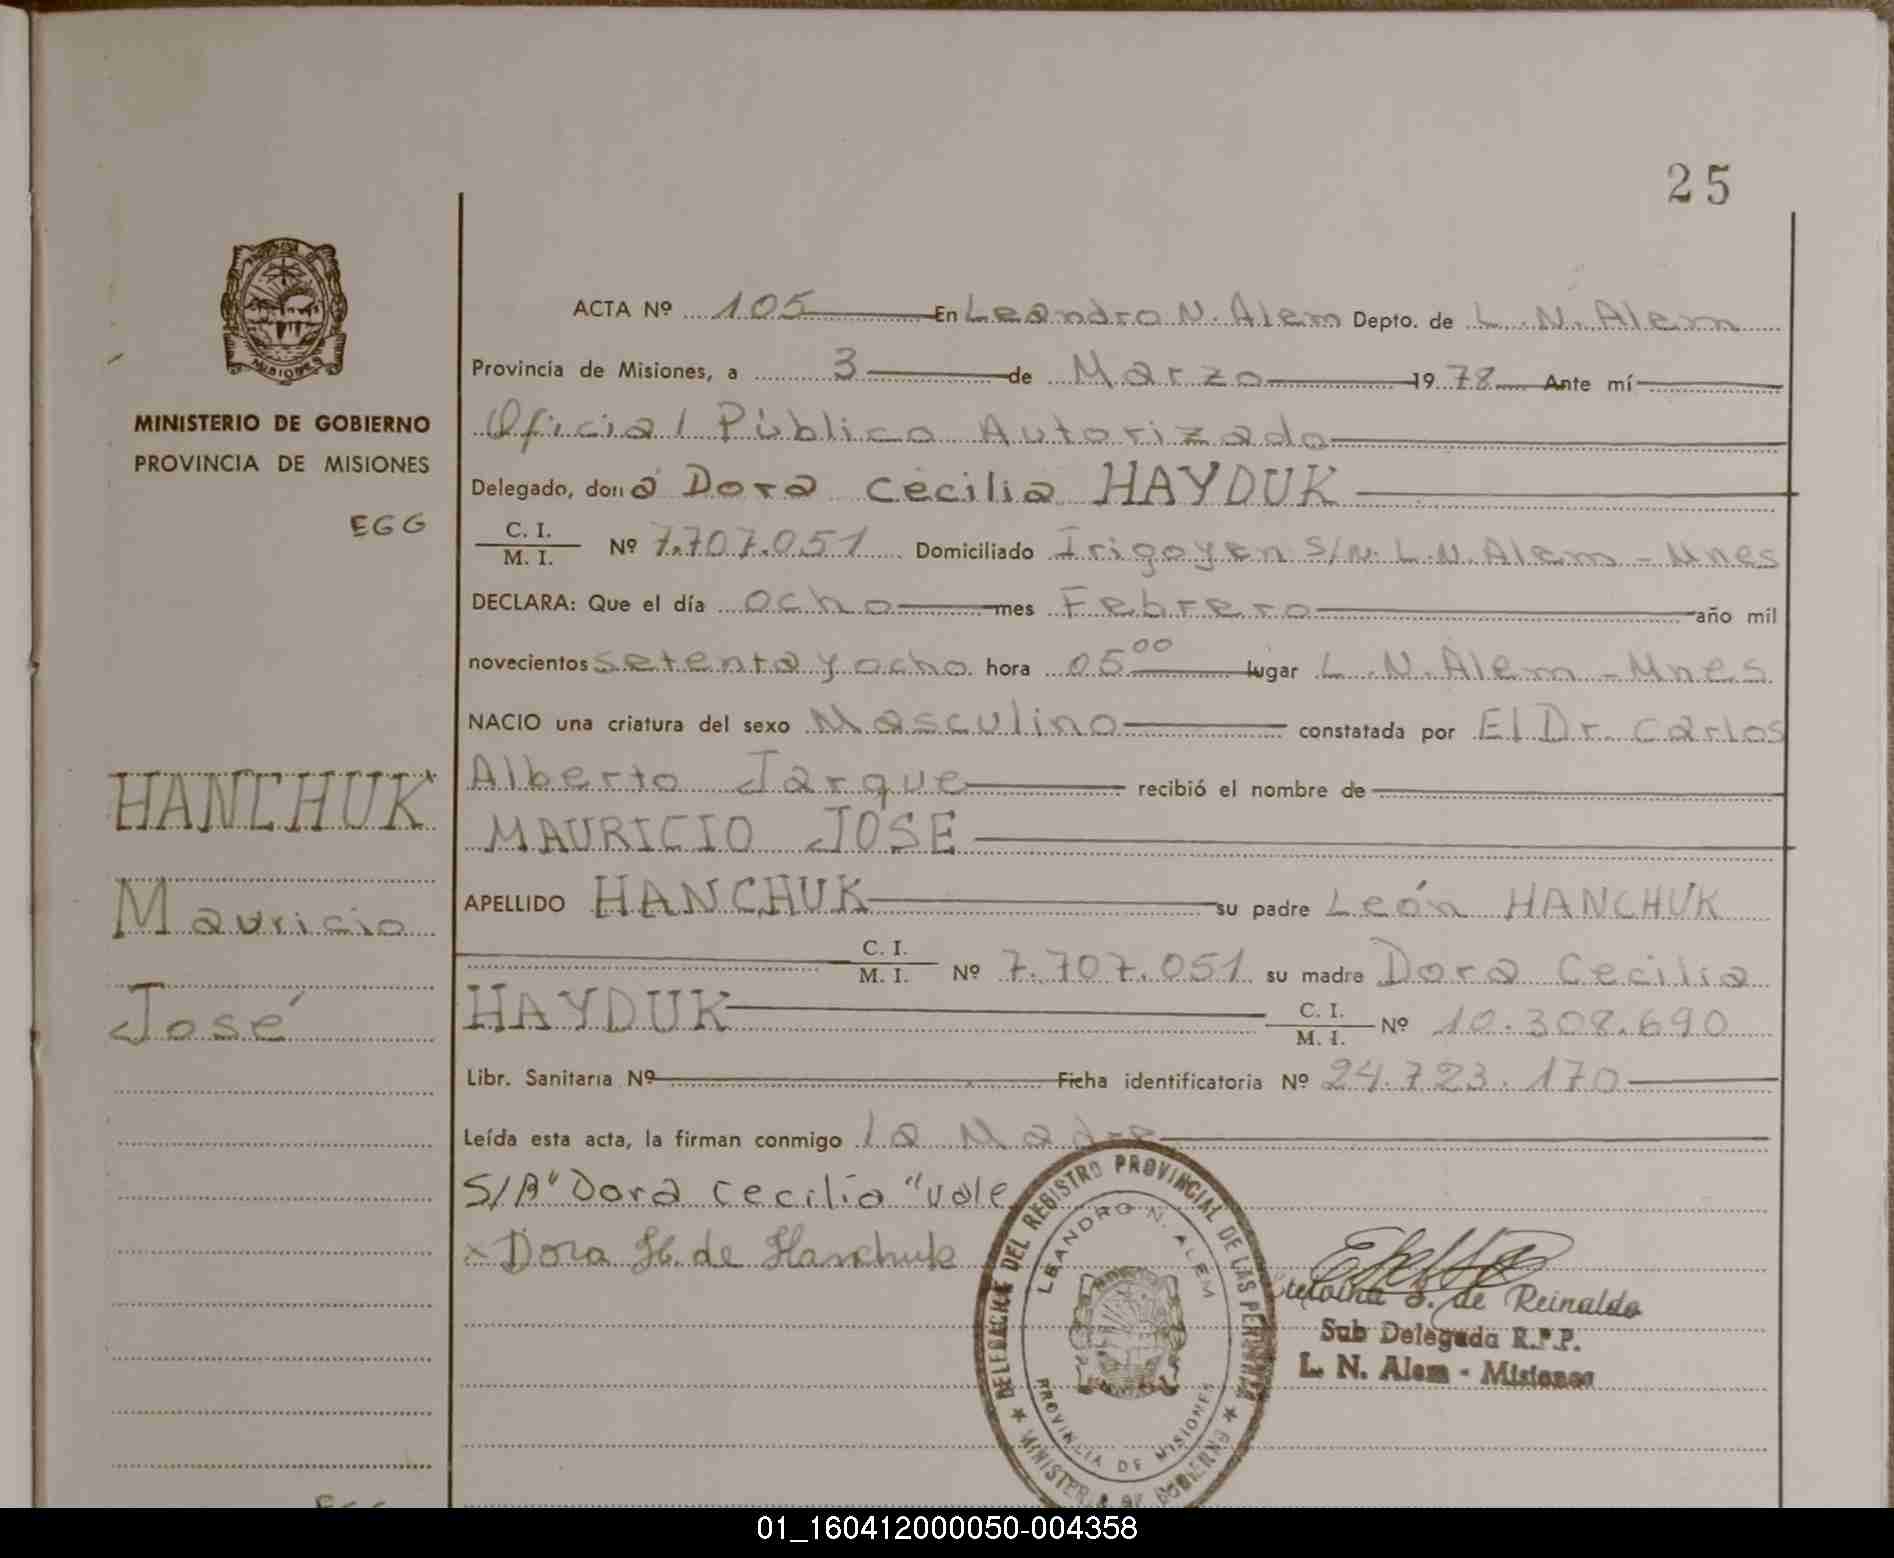 25
ACTA Nº 105 En Leandro N. Alem Depto. de L. N. Alem
Provincia de Misiones, a 3 de Marzo 1978 Ante mí
Oficial Público Autorizado
MINISTERIO DE GOBIERNO
PROVINCIA DE MISIONES
EGG
Delegado, don a Dora Cecilia HAYDUK
C. I.
M. I. Nº 7.707.051 Domiciliado Irigoyen S/N. L.N. Alem - Mnes
DECLARA: Que el día ocho mes Febrero año mil
novecientos setenta y ocho hora 05 00 lugar L. N. Alem - Mnes
NACIO una criatura del sexo Masculino constatada por El Dr. Carlos
Alberto Jarque recibió el nombre de
MAURICIO JOSE
HANCHUK
Mauricio
José
APELLIDO HANCHUK su padre León HANCHUK
C. I.
M. I. Nº 7.707.051 su madre Dora Cecilia
HAYDUK C. I.
M. I. Nº 10.308.690
Libr. Sanitaria Nº Ficha identificatoria Nº 24.723.170
Leída esta acta, la firman conmigo la Madre
S/R "Dora Cecilia" vale
x Dora H. de Hanchuk
DELEGACIÓN DEL REGISTRO PROVINCIAL DE LAS PERSONAS
LEANDRO N. ALEM
PROVINCIA DE MISIONES
MINISTERIO DE GOBIERNO
S. de Reinaldo
Sub Delegada R.P.P.
L. N. Alem - Misiones
01_160412000050-004358